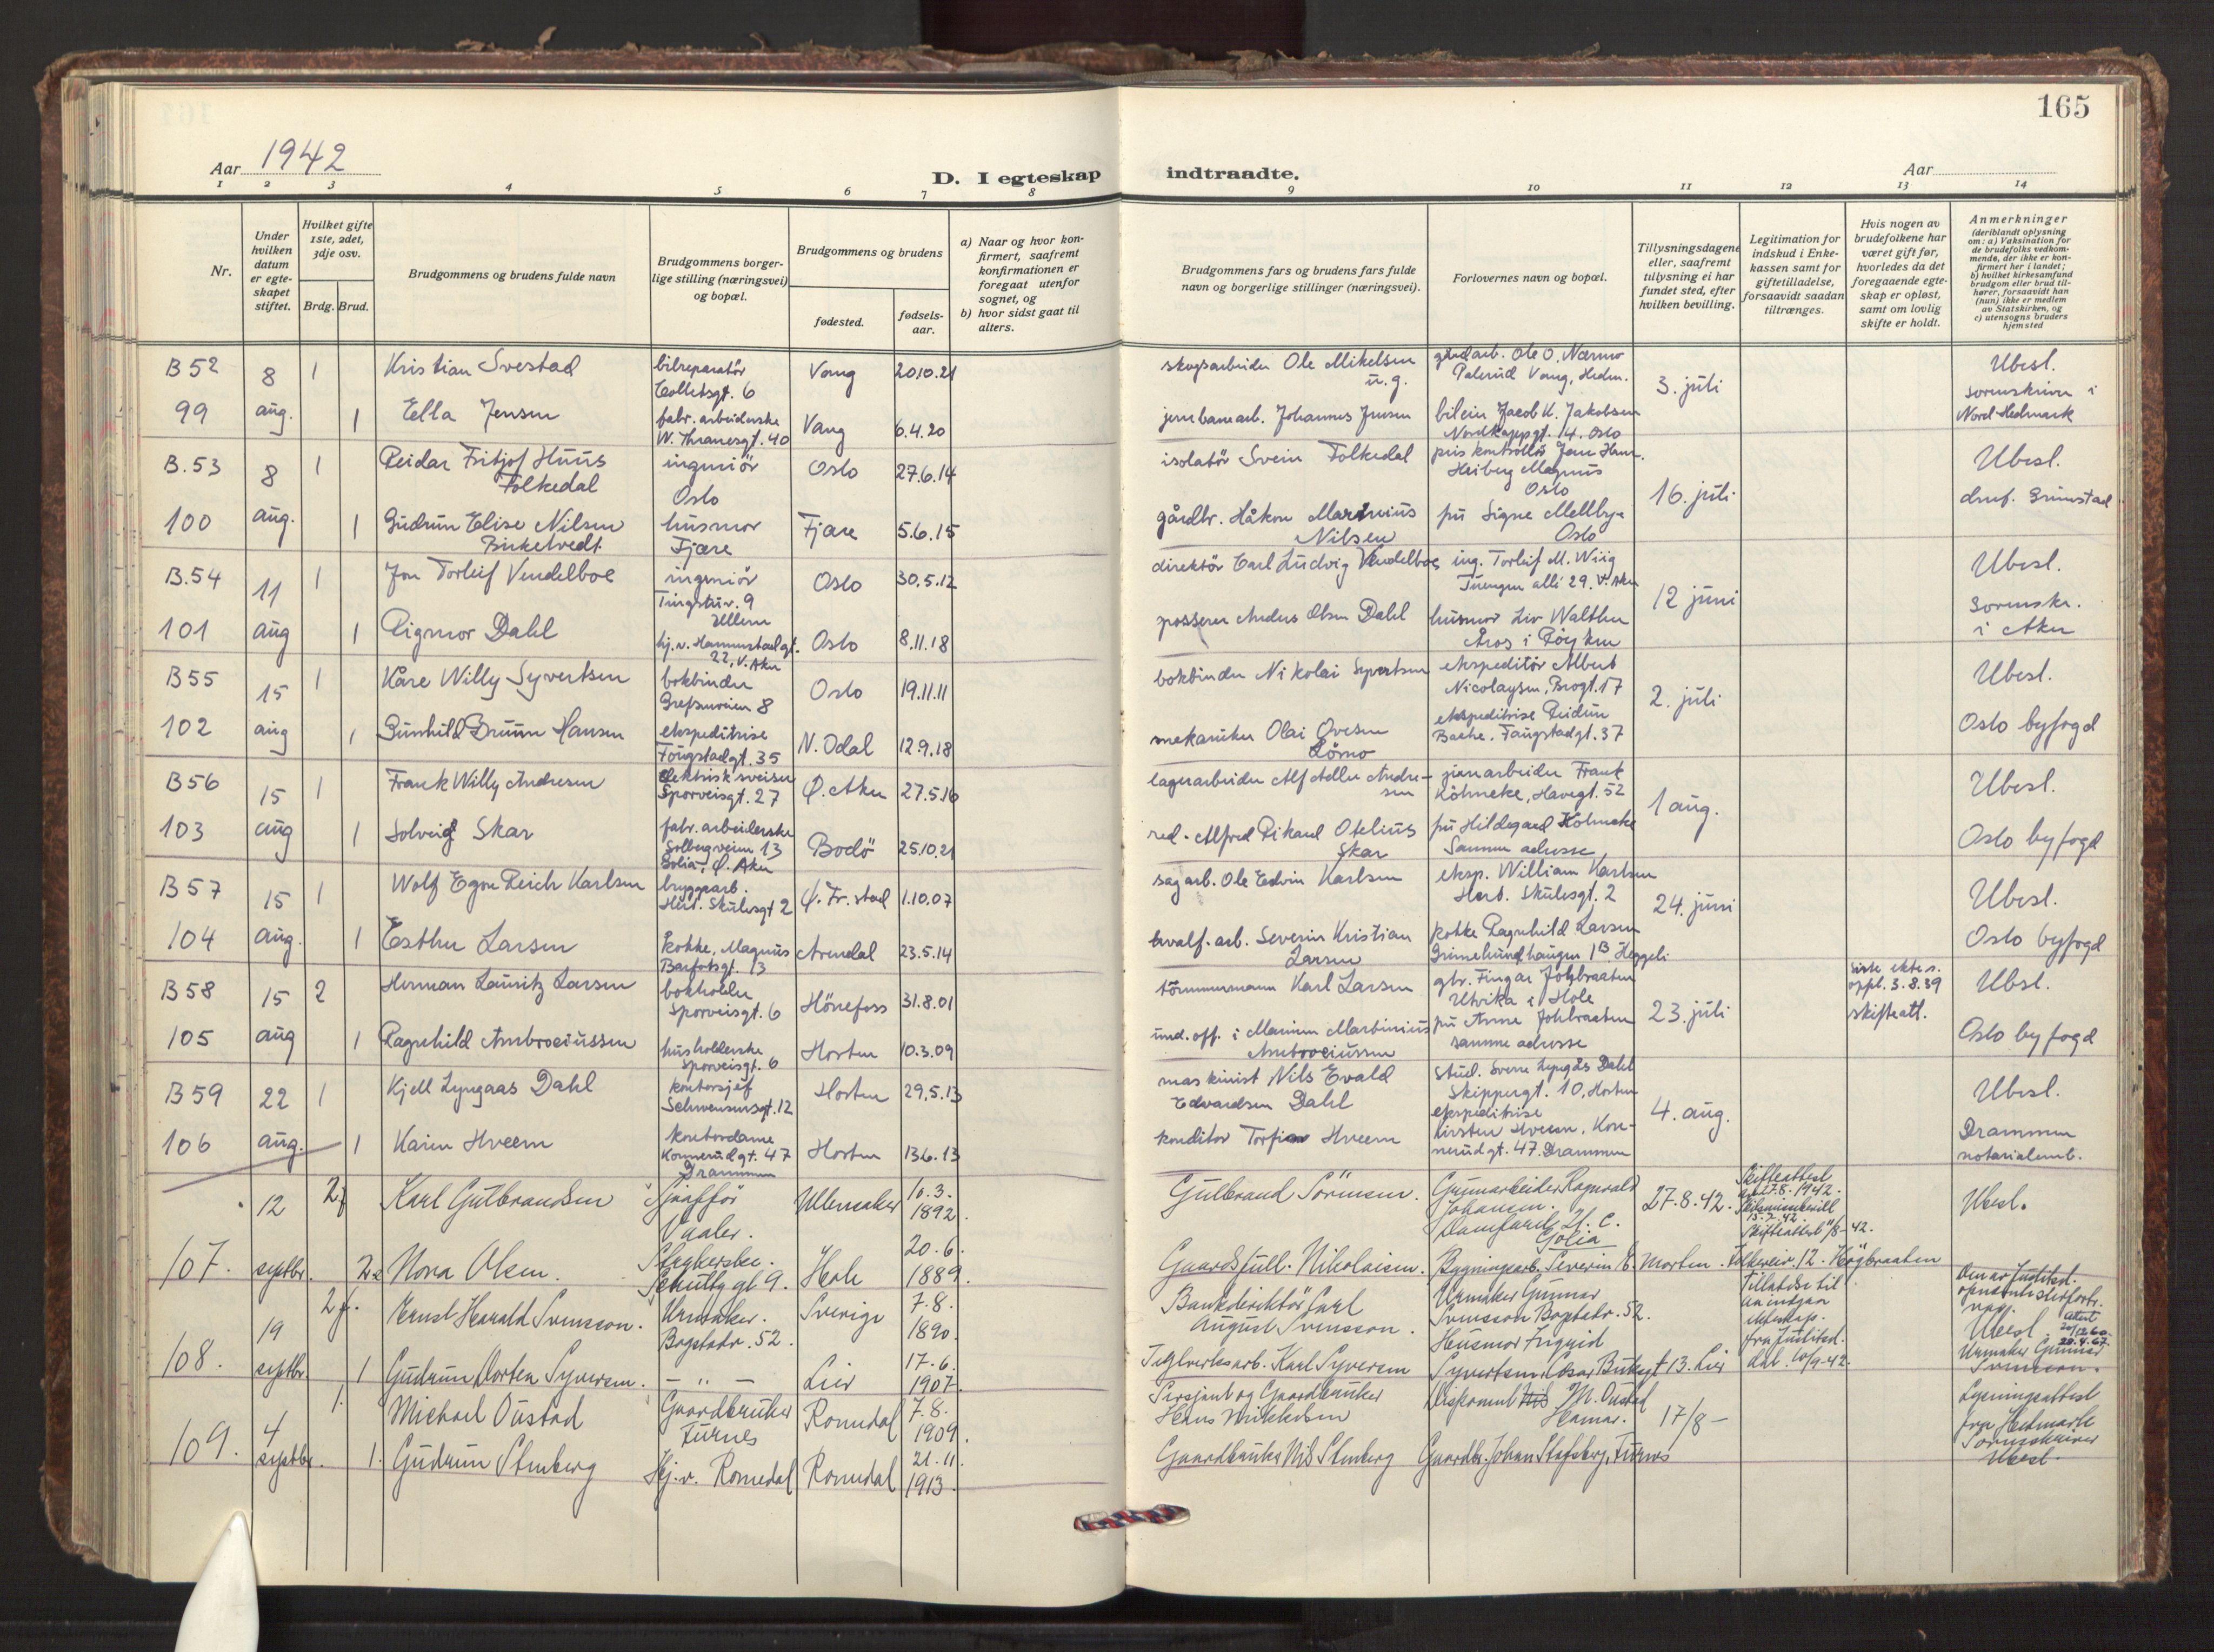 165
Aar 1942
D. I egteskap indtraadte.
Aar
1 2 3 4 5 6 7 8 9 10 11 12 13 14
Nr.
Under hvilken datum er egteskapet stiftet.
Hvilket gifte 1ste, 2det, 3dje osv.
Brdg. Brud.
Brudgommens og brudens fulde navn
Brudgommens borgerlige stilling (næringsvei) og bopæl.
Brudgommens og brudens
fødested.
fødselsaar.
a) Naar og hvor konfirmert, saafremt konfirmationen er foregaat utenfor sognet, og
b) hvor sidst gaat til alters.
Brudgommens fars og brudens fars fulde navn og borgerlige stillinger (næringsvei).
Forlovernes navn og bopæl.
Tillysningsdagene eller, saafremt tillysning ei har fundet sted, efter hvilken bevilling.
Legitimation for indskud i Enkekassen samt for giftetilladelse, forsaavidt saadan tiltrænges.
Hvis nogen av brudefolkene har været gift før, hvorledes da det foregaaende egteskap er opløst, samt om lovlig skifte er holdt.
Anmerkninger (deriblandt oplysning om: a) Vaksination for de brudefolks vedkommende, der ikke er konfirmert her i landet; b) hvilket kirkesamfund brudgom eller brud tilhører, forsaavidt han (hun) ikke er medlem av Statskirken, og c) utensogns bruders hjemsted
B 52 8 1 Kristian Svestad bilreparatör Colletsgt. 6 Vang 20.10.21 skogsarbeider Ole Mikelsen u.g. gårdarb. Ole O. Nærmo Palerud Vang, Hedm. 3. juli Ubesl.
99 aug. 1 Ella Jensen fabr. arbeiderske W. Thranesgt. 40 Vang 6.4.20 jernbanearb. Johannes Jensen bileier Jacob K. Jakobsen Nordkappgt. 14. Oslo sorenskriver i Nord-Hedmark
B.53 8 1 Reidar Fritjof Huus Folkedal ingeniör Oslo Oslo 27.6.14 isolatör Svein Folkedal priskontrollör Jens Henr. Heiberg Magnus Oslo 16. juli Ubesl.
100 aug. 1 Gudrun Elise Nilsen Birketvedt husmor Fjære Fjære 5.6.15 gårdbr. Håkon Marinius Nilsen fru Signe Mellbye Oslo Grimstad
B.54 11 1 Jon Torleif Vendelboe ingeniör Tingstuv. 9 Ullern Oslo 30.5.12 direktör Carl Ludvig Vendelboe ing. Torleif M. Wiig Tuengen allé 29. V. Aker 12 juni Ubesl.
101 aug 1 Rigmor Dahl hj.v. Hammerstadgt. 22, V. Aker Oslo 8.11.18 Anders Olsen Dahl husmor Liv Walther Åros i Röyken sorenskr. i Aker
B55 15 1 Kåre Willy Syvertsen bokbinder Grefsenveien 8 Oslo 19.11.11 bokbinder Nikolai Syvertsen ekspeditör Albert Nicolaysen, Brogt. 17 2. juli Ubesl.
102 aug 1 Gunhild Bruun Hansen ekspeditrise Fougstadgt. 35 N. Odal 12.9.18 mekaniker Olai Ovesen Lömo ekspeditrise Reidun Bache. Faugstadgt. 37 Oslo byfogd
B56 15 1 Frank Willy Andresen elektrisk sveiser Sporveisgt. 27 Ö. Aker 27.5.16 lagerarbeider Alf Adler Andresen jernarbeider Frank Köhneke, Havegt. 52 1 aug. Ubesl.
103 aug 1 Solveig Skar fabr. arbeiderske Solbergveien 13 Golia, Ö. Aker Bodö 25.10.21 red. Alfred Rikard Otelius Skar fru Hildegard Köhneke Samme adresse Oslo byfogd
B57 15 1 Wolf Egon Reich Karlsen bryggearb. Hert. Skulesgt 2 Ö. Fr.stad 1.10.07 sagarb. Ole Edvin Karlsen eksp. William Karlsen Hert. Skulesgt. 2 24. juni Ubesl.
104 aug. 1 Esther Larsen kokke, Magnus Barfotsgt. 13 Arendal 23.5.14 hvalf.arb. Severin Kristian Larsen kokke Ragnhild Larsen Grimelundshaugen 1B Heggeli Oslo byfogd
B58 15 2 Herman Lauritz Larsen bokholder Sporveisgt. 6 Hönefoss 31.8.01 tömmermann Karl Larsen gbr. Fingar Johbraaten Utvika i Hole 23. juli siste ekte s. oppl. 3.8.39 skifteatt. Ubesl.
105 aug 1 Ragnhild Ambrociussen husholderske Sporveisgt. 6 Horten 10.3.09 und.off. i Marinen Martinius Ambrociussen fru Anne Johbraaten samme adresse Oslo byfogd
B59 22 1 Kjell Lyngaas Dahl kontorsjef Schwensensgt. 12 Horten 29.5.13 maskinist Nils Evald Edvardsen Dahl stud. Sverre Lyngås Dahl Skippergt. 10, Horten 4. aug. Ubesl.
106 aug. 1 Karin Hveem kontordame Konnerudgt. 47 Drammen Horten 13.6.13 konditor Torfinn Hveem ekspeditrise Kirsten Hveem. Konnerudgt. 47. Drammen Drammen notarialemb.
12 2g Karl Gulbrandsen Sjafför Vaaler. Ullensaker 10.3. 1892. Gulbrand Sörensen. Gummarbeider Ragnvald Johansen. 27.8.42. Skifteattest 27.8.1942. Skifteattest 11/8-42. Ubesl.
107. septbr. 2 Nora Olsen. Schultz gt 9. Hole 20.6. 1889. Gaards Gull. Nikolaisen. Bygningsarb. Severin E. Morten. 12. Högbraaten
19 2g. Ernst Harald Svensson. Urmaker. Bogstadv. 52. Sverige 7.8. 1890. Bankdirektör Carl August Svensson. Urmaker Gunnar Svensson Bogstadv. 52. Tillatelse til ekteskap. fra Justitsd. 10/9-42. Ubesl.
108. septbr. 1 Gudrun Dorten Syversen. - " - Lier 17.6. 1907. Teglverksarb. Karl Syversen Husmor Ingrid Syvertsen. 13. Lier Urmaker Gunnar Svensson.
4 1. Michael Oustad Gaardbruker Furnes Romedal 7.8. 1909. Sersjant og Gaardbruker Hans Mikkelsen M. Oustad Hamar. 17/8- Lysningsattest fra Hedmark Sorenskriver
109. septbr. 1. Gudrun Stenberg Hj.v. Romedal Romedal 21.11. 1913. Gaardbruker Nils Stenberg Gaardbr. Johan Stafsberg, Furnes Ubesl.